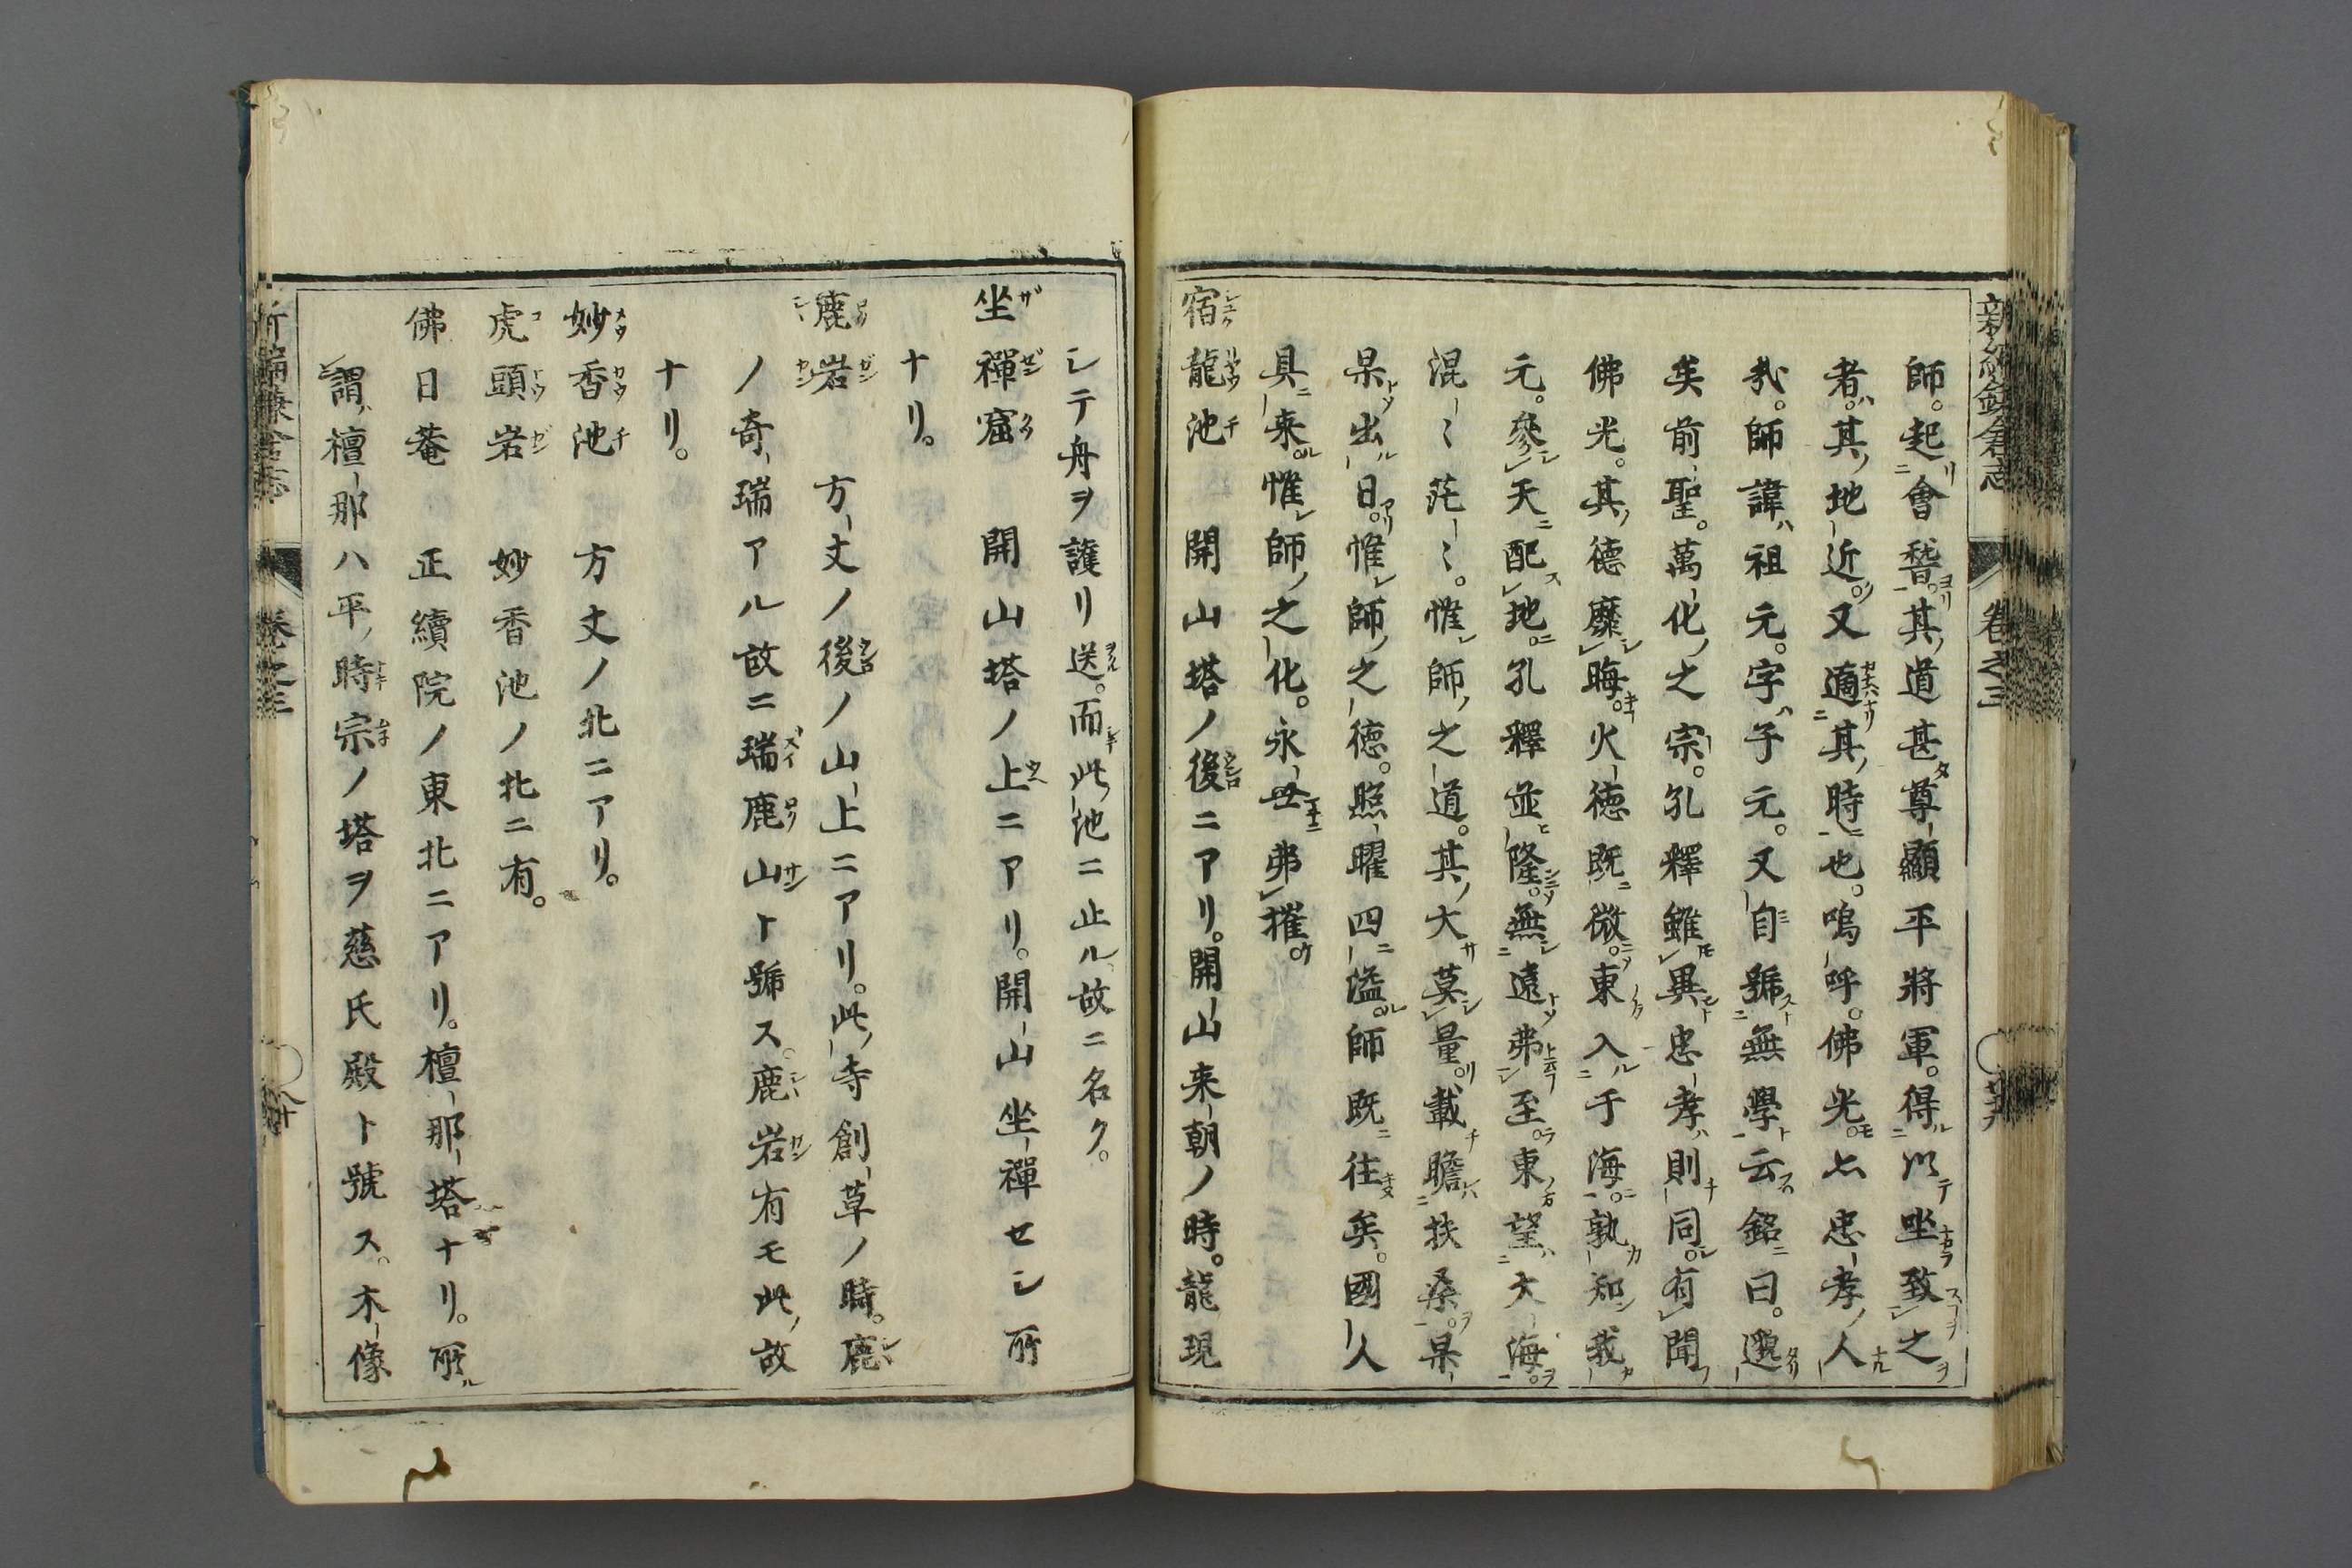 師。起會嵆。其道甚尊顯平將軍。得以坐致之
者。其地近。又適其時也。嗚呼。佛光亦忠孝人
哉。師諱祖元。字子元。又自號無學云銘曰。邈
矣前聖。萬化之宗。孔釋雖異忠孝則同。有聞
佛光。其德靡晦。火德既微。東入于海。孰知我
元。參天配地。孔釋並隆。無遠弗至。東望大海。
混〻茫〻。惟師之道。其大莫量。載瞻扶桑。杲
杲出日。惟師之德。照曜四溢。師既往矣。國人
具来。惟師之化。永世弗摧。
宿龍池　開山塔ノ後ニアリ。開山来朝ノ時。龍現
シテ舟ヲ護リ送。而此池ニ止ル、故ニ名ク。
坐禪窟　開山塔ノ上ニアリ。開山坐禪セシ所
ナリ。
鹿岩　方丈ノ後ノ山上ニアリ。此寺創草ノ時。鹿
ノ奇瑞アル故ニ瑞鹿山ト號ス。鹿岩有モ此故
ナリ。
妙香池　方丈ノ北ニアリ。
虎頭岩　妙香池ノ北ニ有。
佛日菴　正續院ノ東北ニアリ。檀那塔ナリ。所
謂檀那ハ平時宗ノ塔ヲ慈氏殿ト號ス。木像
新編鎌倉志　卷之三